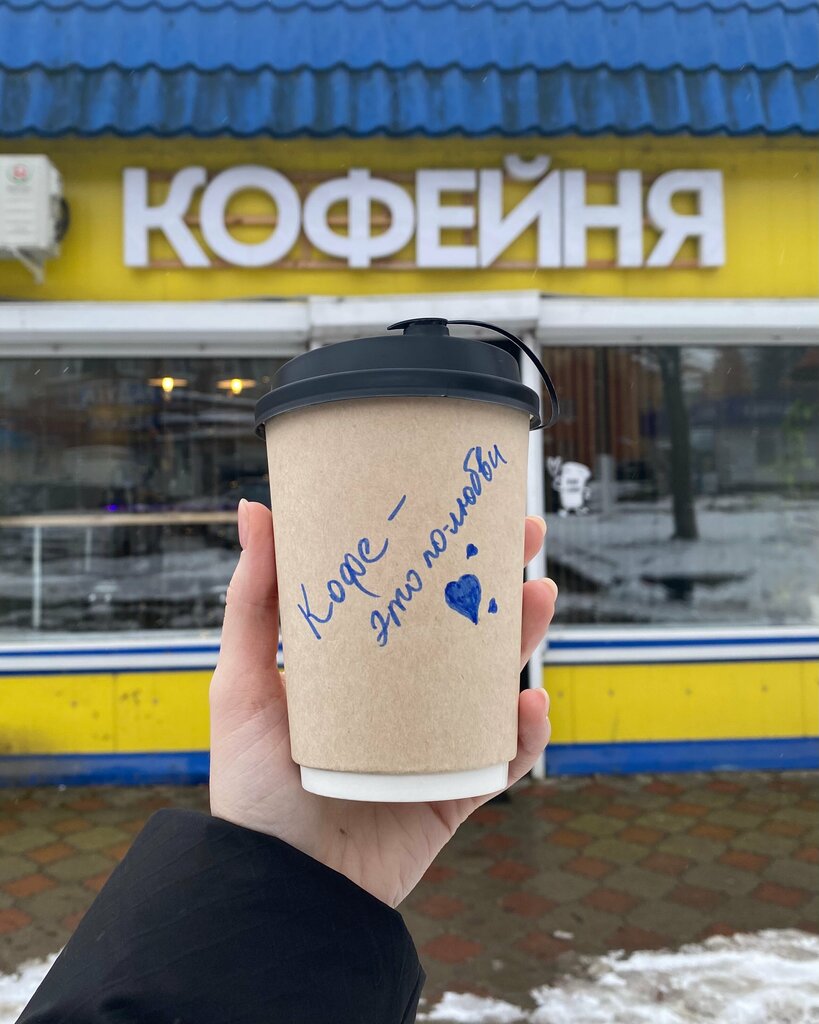 КОФЕЙНЯ
Кофе –
это по-любви